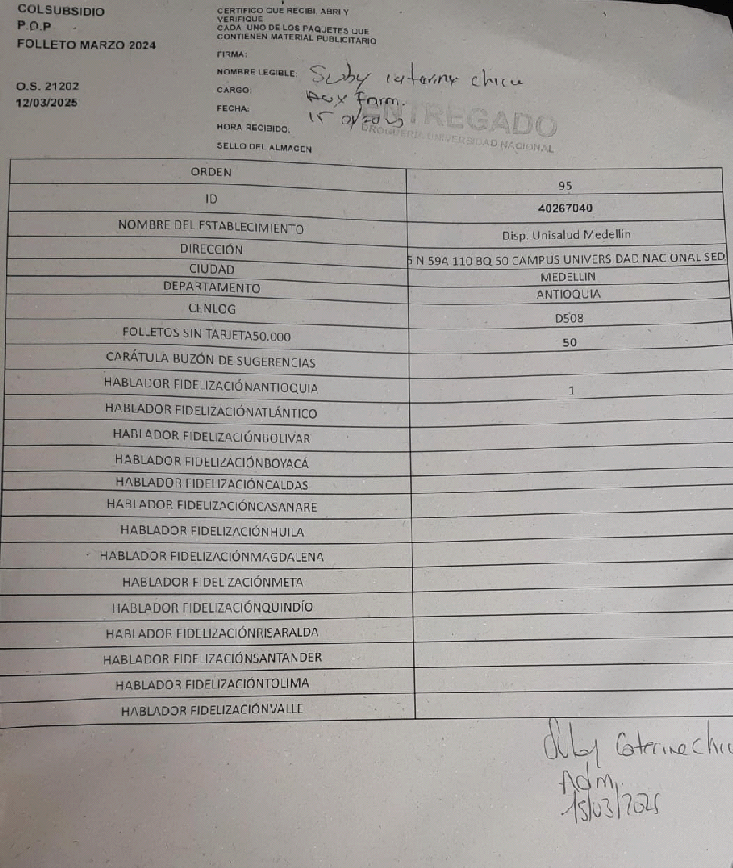 COLSUBSIDIO
P.O.P
FOLLETO MARZO 2024
O.S. 21202
12/03/2025
CERTIFICO QUE RECIBI, ABRI Y
VERIFIQUE
CADA UNO DE LOS PAQUETES QUE
CONTIENEN MATERIAL PUBLICITARIO
FIRMA:
NOMBRE LEGIBLE: Suby Caterine Chica
CARGO: Aux Farm.
FECHA: 15
HORA RECIBIDO:
SELLO DEL ALMACEN
ENTREGADO
DROGUERIA UNIVERSIDAD NACIONAL
ORDEN 95
ID 40267040
NOMBRE DEL ESTABLECIMIENTO Disp. Unisalud Medellin
DIRECCIÓN 5 N 59A 110 BQ 50 CAMPUS UNIVERSIDAD NACIONAL SED
CIUDAD MEDELLIN
DEPARTAMENTO ANTIOQUIA
CENLOG D508
FOLLETOS SIN TARJETA50.000 50
CARÁTULA BUZÓN DE SUGERENCIAS
HABLADOR FIDELIZACIÓNANTIOQUIA 1
HABLADOR FIDELIZACIÓNATLÁNTICO
HABLADOR FIDELIZACIÓNBOLIVAR
HABLADOR FIDELIZACIÓNBOYACÁ
HABLADOR FIDELIZACIÓNCALDAS
HABLADOR FIDELIZACIÓNCASANARE
HABLADOR FIDELIZACIÓNHUILA
HABLADOR FIDELIZACIÓNMAGDALENA
HABLADOR FIDELIZACIÓNMETA
HABLADOR FIDELIZACIÓNQUINDÍO
HABLADOR FIDELIZACIÓNRISARALDA
HABLADOR FIDELIZACIÓNSANTANDER
HABLADOR FIDELIZACIÓNTOLIMA
HABLADOR FIDELIZACIÓNVALLE
Caterine Chic
Adm.
15/03/2025